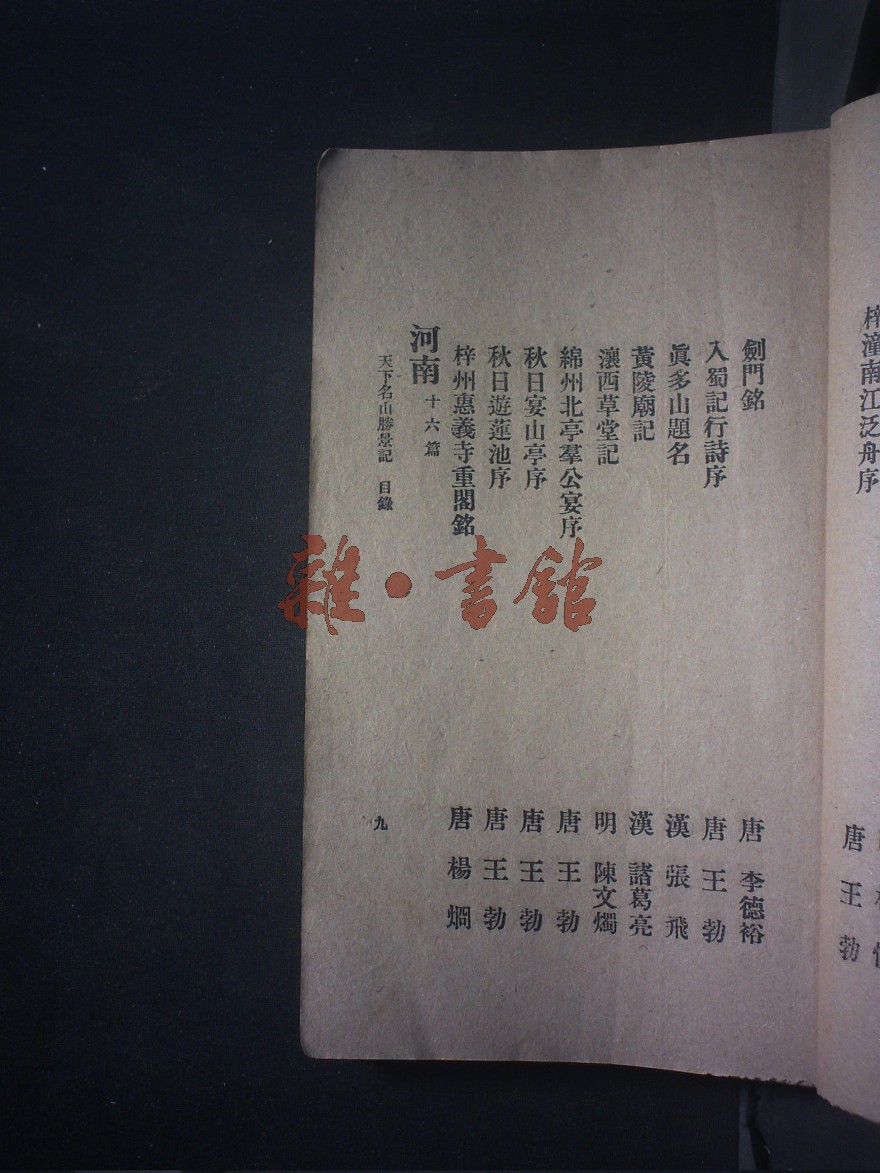 梓潼南江泛舟序
唐 王勃
劍門銘 唐 李德裕
入蜀記行詩序 唐 王勃
眞多山題名 漢 張飛
黃陵廟記 漢 諸葛亮
瀼西草堂記 明 陳文燭
綿州北亭羣公宴序 唐 王勃
秋日宴山亭序 唐 王勃
秋日遊蓮池序 唐 王勃
梓州惠義寺重閣銘 唐 楊烱
河南 十六篇
天下名山勝景記 目錄 九
雜·書館